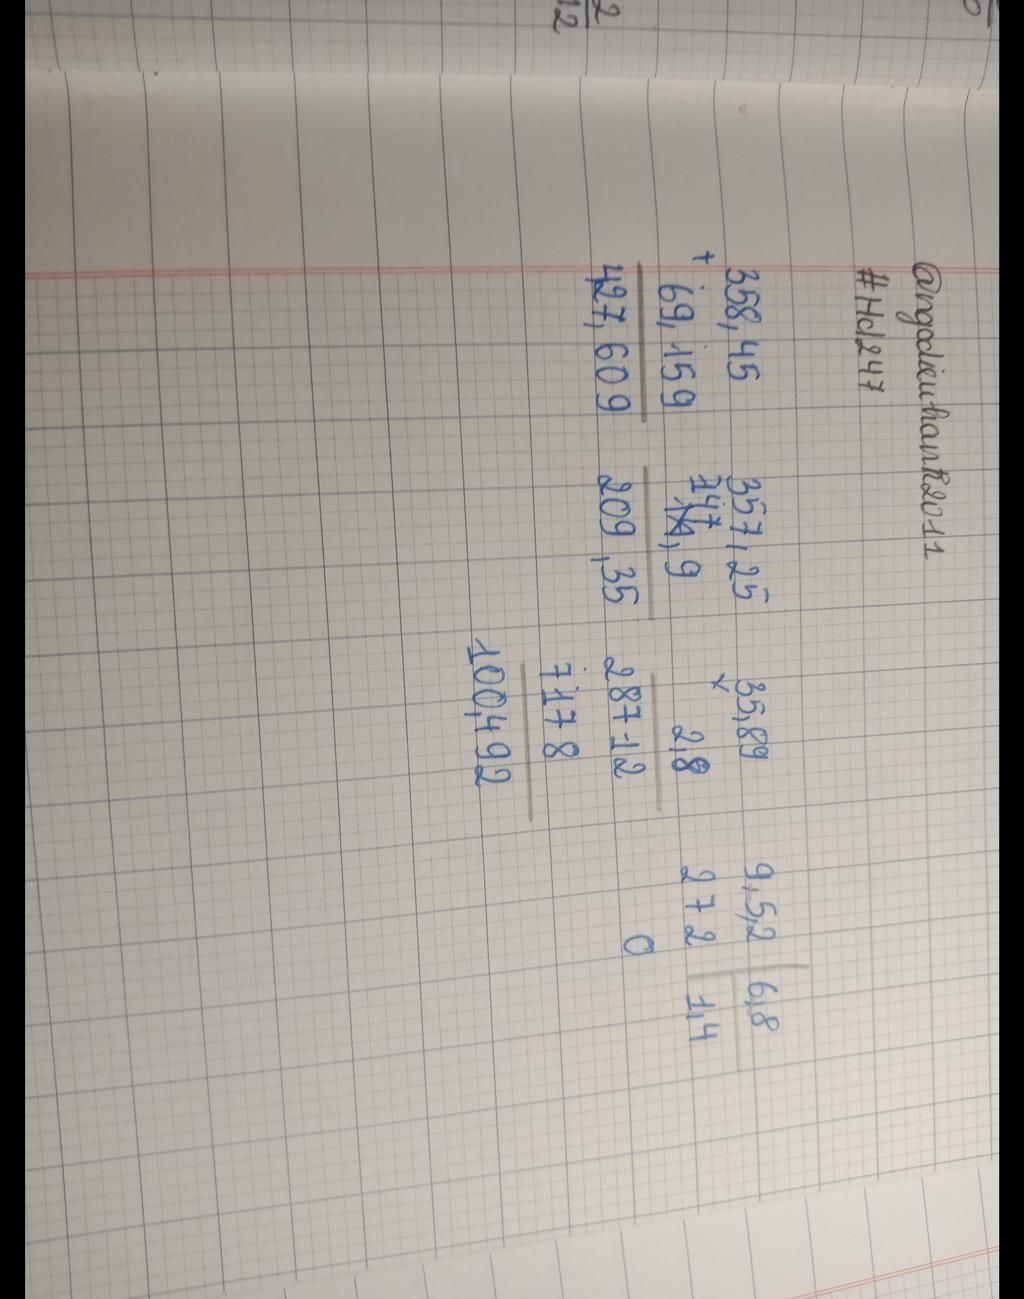 @ngodieuhanh2011
#Hd247
358,45 357,25 35,89 9,5,2 6,8
+ 69,159 147,9 × 2,8 272 1,4
427,609 209,35 28712 0
7178
100,492
2
12